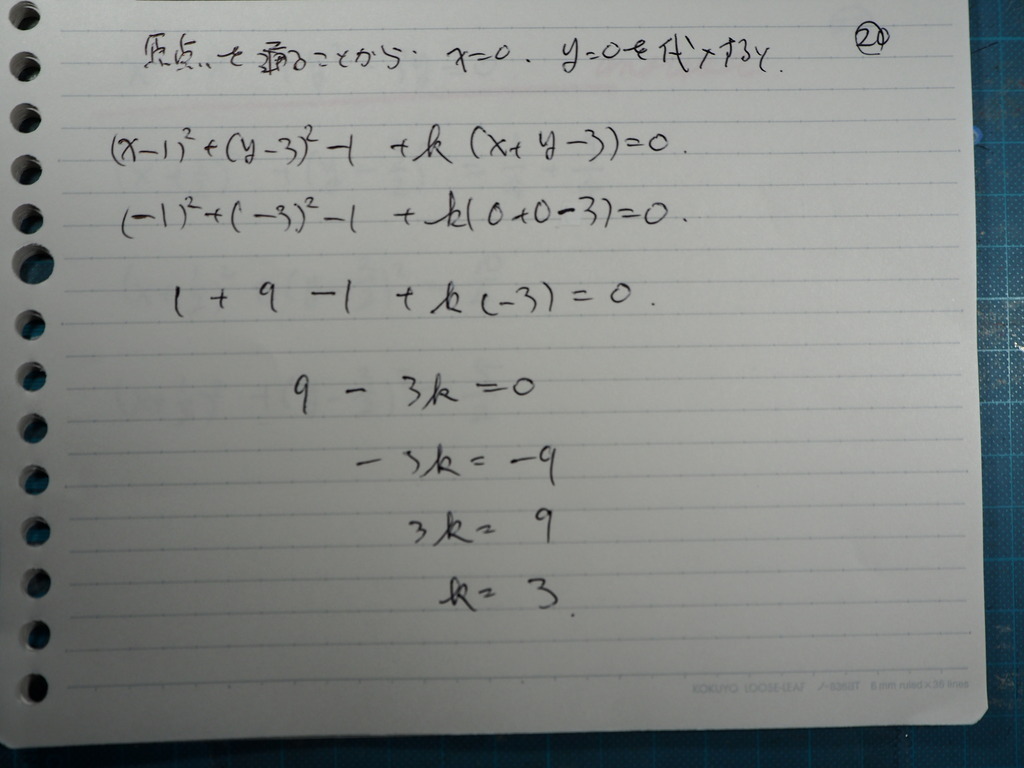 原点を通ることから. x=0. y=0を代入すると. ⑳
(x-1)²+(y-3)²-1 +k (x+y-3)=0.
(-1)²+(-3)²-1 +k(0+0-3)=0.
1 + 9 -1 + k(-3) = 0.
9 - 3k =0
-3k= -9
3k= 9
k= 3.
KOKUYO LOOSE-LEAF ノ-836BT 6 mm ruled×36 lines